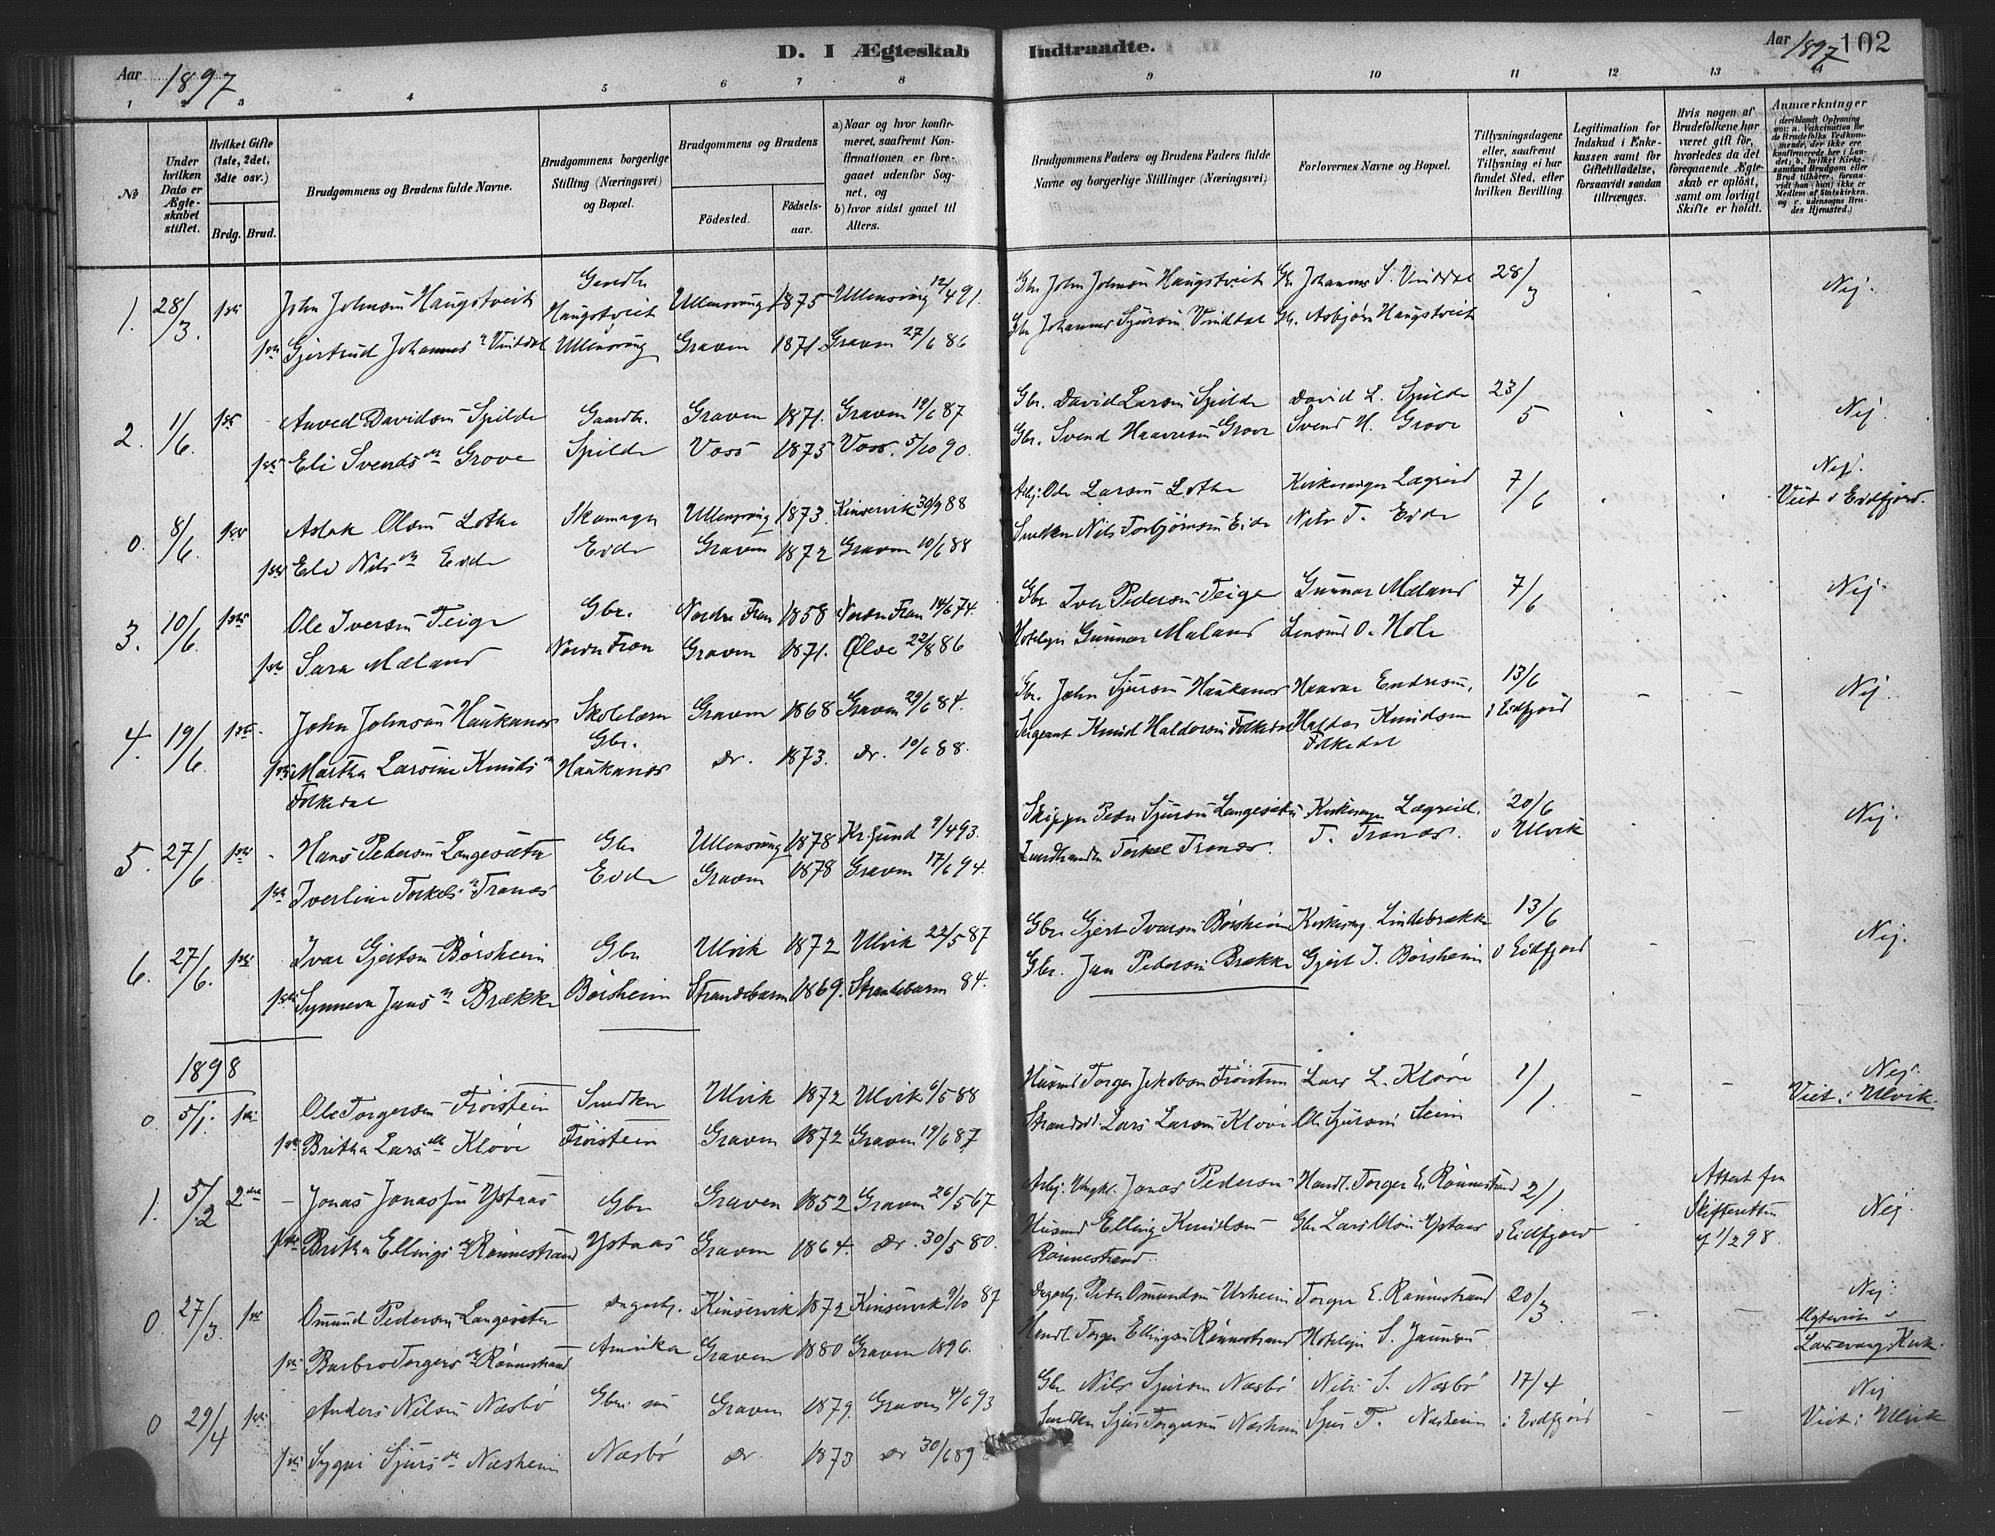 D. I Ægteskab Indtraadte.
Aar 1897
Aar 1897 102
1 2 3 4 5 6 7 8 9 10 11 12 13 14
No
Under hvilken Dato er Ægteskabet stiftet.
Hvilket Gifte (1ste, 2det, 3die osv.)
Brdg. Brud.
Brudgommens og Brudens fulde Navne.
Brudgommens borgerlige Stilling (Næringsvei) og Bopæl.
Brudgommens og Brudens
Födested. Födsels-aar.
a) Naar og hvor konfirmeret, saafremt Konfirmationen er foregaaet udenfor Sognet, og
b) hvor sidst gaaet til Alters.
Brudgommens Faders og Brudens Faders fulde Navne og borgerlige Stillinger (Næringsvei)
Forlovernes Navne og Bopæl.
Tillysningsdagene eller, saafremt Tillysning ei har fundet Sted, efter hvilken Bevilling.
Legitimation for Indskud i Enkekassen samt for Giftetilladelse, forsaavidt saadan tiltrænges.
Hvis nogen af Brudefolkene har været gift før, hvorledes da det foregaaende Ægteskab er oplöst, samt om lovligt Skifte er holdt.
Anmærkninger
1. 28/3. 1ste John Johnsen Haugstveit Gaardbr. Ullensvang 1875 Ullensvang 12/4 91. Gbr. John Johnsen Haugstveit Gbr. Johannes S. Vinddal 28/3 Nej.
1ste Gjertrud Johannesdr Vinddal Haugstveit Ullensvang Graven 1871 Graven 27/6 86 Gbr Johannes Sjursen Vinddal Gbr. Asbjörn Haugstveit
2. 1/6 1ste Anved Davidsen Spilde Gaardbr. Graven 1871. Graven 19/6 87 Gbr. David Larsen Spilde David L. Spilde 23/5 Nej
1ste Eli Svendsdr Grove Spilde Voss 1875 Voss. 5/10 90. Gbr. Svend Haavresen Grove Svend H. Grove
0. 8/6. 1ste Aslak Olsen Lothe Skomager Ullensvang 1873. Kinservik 30/9 88 Arbj: Ole Larsen Lothe Kirkesanger Lægreid 7/6 Nej. Viet i Eidfjord.
1ste Eli Nilsdr Eide Eide Graven 1872 Graven 10/6 88 Snedker Nils Torbjörnsen Eide Nils T. Eide
3. 10/6. 1ste Ole Iversen Teige Gbr. Nordre Fron 1858 Nordre Fron 14/6 74. Gbr Iver Pedersen Teige Gunnar Mæland 7/6 Nej
1ste Sara Mæland Nordre Fron Graven 1871. Ølve 22/8 86 Hotelejer Gunnar Mæland Lensmd O. Hole
4. 19/6. 1ste John Johnsen Haukanæs Skolelærer Gbr. Graven 1868 Graven 29/6 84. Gbr. John Sjursen Haukanæs Haavar Endresen, 13/6 i Eidfjord Nej
1ste Martha Larsine Knudsdr Folkedal Haukanæs do. 1873. do. 10/6 88. Sergeant Knud Haldorsen Folkedal Haldor Knudsen Folkedal
5. 27/6 1ste Hans Pedersen Langesæter Gbr Ullensvang 1878 Kr.sund 9/4 93. Skipper Peder Sjursen Langesæter Kirkesanger Lægreid. 20/6 i Ulvik Nej.
1ste Iverline Torkelsdr Tronæs Eide Graven 1878 Graven 17/6 94. Landhandler Torkel Tronæs. T. Tronæs.
6. 27/6. 1ste Ivar Gjertsen Börsheim Gbr Ulvik 1872 Ulvik 22/5 87 Gbr Gjert Ivarsen Börsheim Kirkesang. Lindebrække 13/6 i Eidfjord Nej.
1ste Synneva Jansdr Brække Börsheim Strandebarm 1869. Strandebarm 84. Gbr. Jan Pedersen Brække Gjert I. Börsheim
1898
0. 5/1. 1ste Ole Torgersen Fröistein Snedker Ulvik 1872 Ulvik 6/5 88 Husmd Torger Jakobsen Fröistein Lars L. Klöve 1/1. Nej. Viet i Ulvik.
1ste Britha Larsdr Klöve Fröistein Graven 1872 Graven 19/6 87 Strandsd. Lars Larsen Klöve Ole Sjursen Seim
1. 5/2 2den Jonas Jonassen Ystaas Gbr Graven 1852 Graven 26/5 67 Arbj. Ungkr. Jonas Pedersen Handl. Torger E. Rönnestrand 2/1 i Eidfjord Attest fra Skifteretten af 1/2 98. Nej.
1ste Britha Ellingsdr Rönnestrand Ystaas Graven 1864. do. 30/5 80. Husmd Elling Knudsen Rönnestrand. Gbr Lars Olsen Ystaas
0. 27/3. 1ste Omund Pedersen Langesæter Dagarbj. Kinservik 1872 Kinservik 9/10 87 Dagarbj. Peder Omundsen Urheim Torger E. Rönnestrand 20/3. Nej.
1ste Barbro Torgersdr Rönnestrand Amerika Graven 1880 Graven 1896. Handl. Torger Ellingsen Rönnestrand Hotelejer S. Jaunsen Laxevaag Kirk.
0 29/4 1ste Anders Nilsen Næsbö Gbr. sön Graven 1879. Graven 4/6 93 Gbr Nils Sjursen Næsbö Nils S. Næsbö 17/4 i Eidfjord Nej Viet i Ulvik
1ste Sygni Sjursdr Næsheim Næsbö do. 1873 do 30/6 89 Snedker Sjur Torgersen Næsheim Sjur T. Næsheim